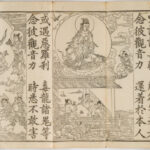 還著於本人
或遇惡羅剎 毒龍諸鬼等
念彼觀音力 時悉不敢害